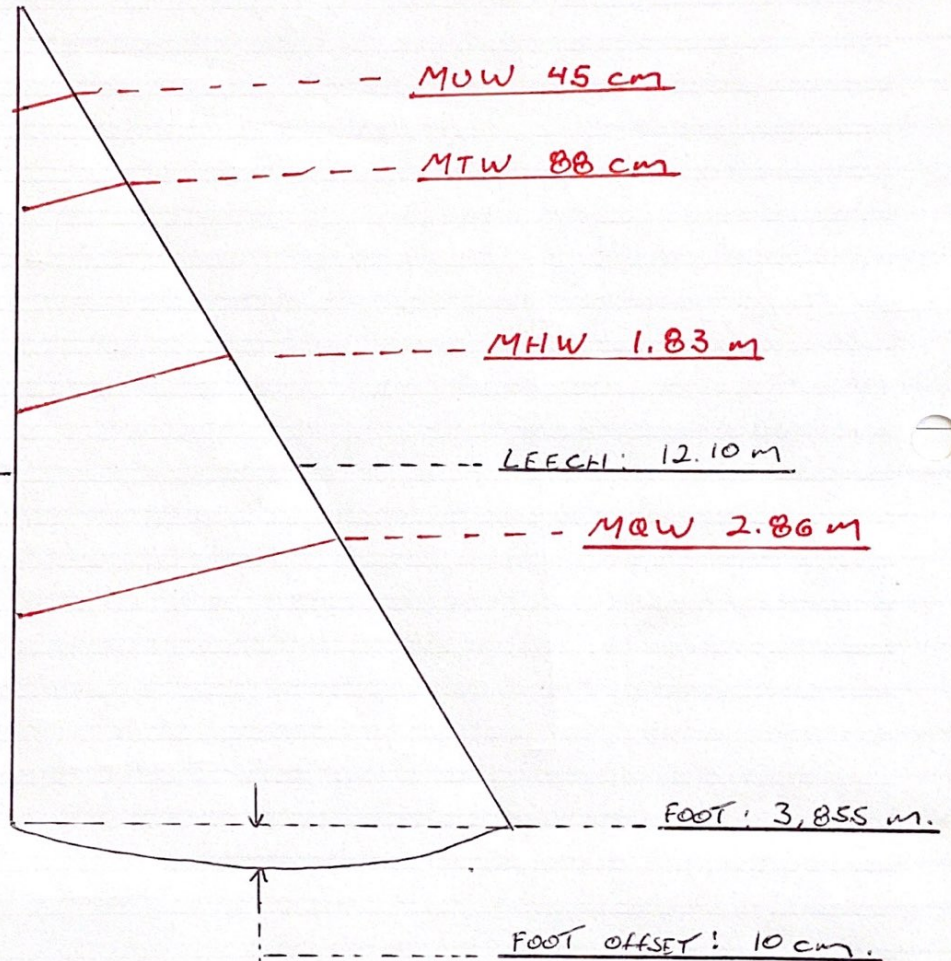 MUW 45 cm
MTW 88 cm
MHW 1.83 m
LEECH: 12.10 m
MQW 2.86 m
FOOT: 3,855 m.
FOOT OFFSET: 10 cm.